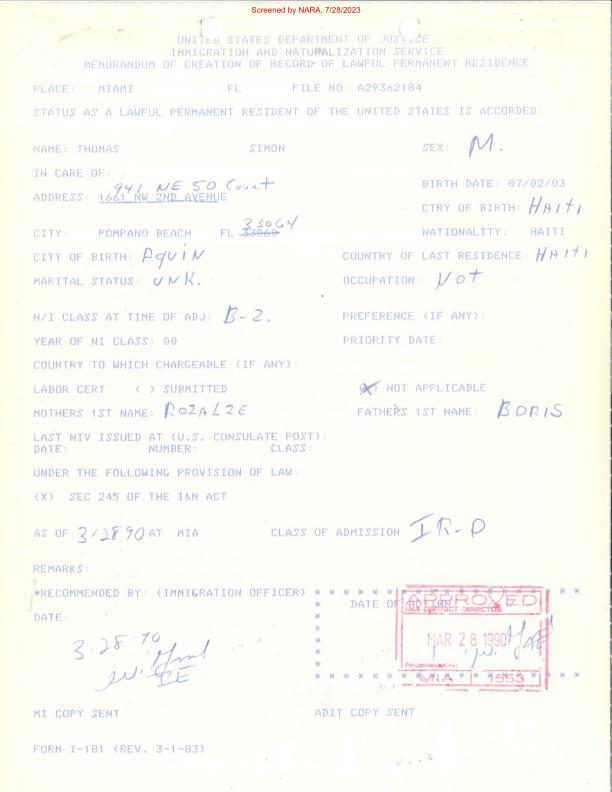 Screened by NARA, 7/28/2023
UNITED STATES DEPARTMENT OF JUSTICE
IMMIGRATION AND NATURALIZATION SERVICE
MEMORANDUM OF CREATION OF RECORD OF LAWFUL PERMANENT RESIDENCE
PLACE: MIAMI FL FILE NO: A29362184
STATUS AS A LAWFUL PERMANENT RESIDENT OF THE UNITED STATES IS ACCORDED:
NAME: THOMAS SIMON SEX: M.
IN CARE OF:
941 NE 50 Court
ADDRESS: 1661 NW 2ND AVENUE
BIRTH DATE: 07/02/03
CTRY OF BIRTH: HAITI
33064
CITY: POMPANO BEACH FL 33060 NATIONALITY: HAITI
CITY OF BIRTH: AQUIN COUNTRY OF LAST RESIDENCE: HAITI
MARITAL STATUS: UNK. OCCUPATION: Not
N/I CLASS AT TIME OF ADJ: B-2. PREFERENCE (IF ANY):
YEAR OF NI CLASS: 00 PRIORITY DATE:
COUNTRY TO WHICH CHARGEABLE (IF ANY):
LABOR CERT ( ) SUBMITTED (X) NOT APPLICABLE
MOTHERS 1ST NAME: ROZALZE FATHERS 1ST NAME: BORIS
LAST NIV ISSUED AT (U.S. CONSULATE POST):
DATE: NUMBER: CLASS:
UNDER THE FOLLOWING PROVISION OF LAW:
(X) SEC 245 OF THE I&N ACT
AS OF 3/28 90 AT MIA CLASS OF ADMISSION IR-0
REMARKS:
*RECOMMENDED BY: (IMMIGRATION OFFICER) * * * * * * * * * * * * * * * * * *
DATE OF ACTION
APPROVED
DISTRICT DIRECTOR
DATE:
MAR 28 1990
3-28-90
MIA 1553
MI COPY SENT ADIT COPY SENT
FORM I-181 (REV. 3-1-83)